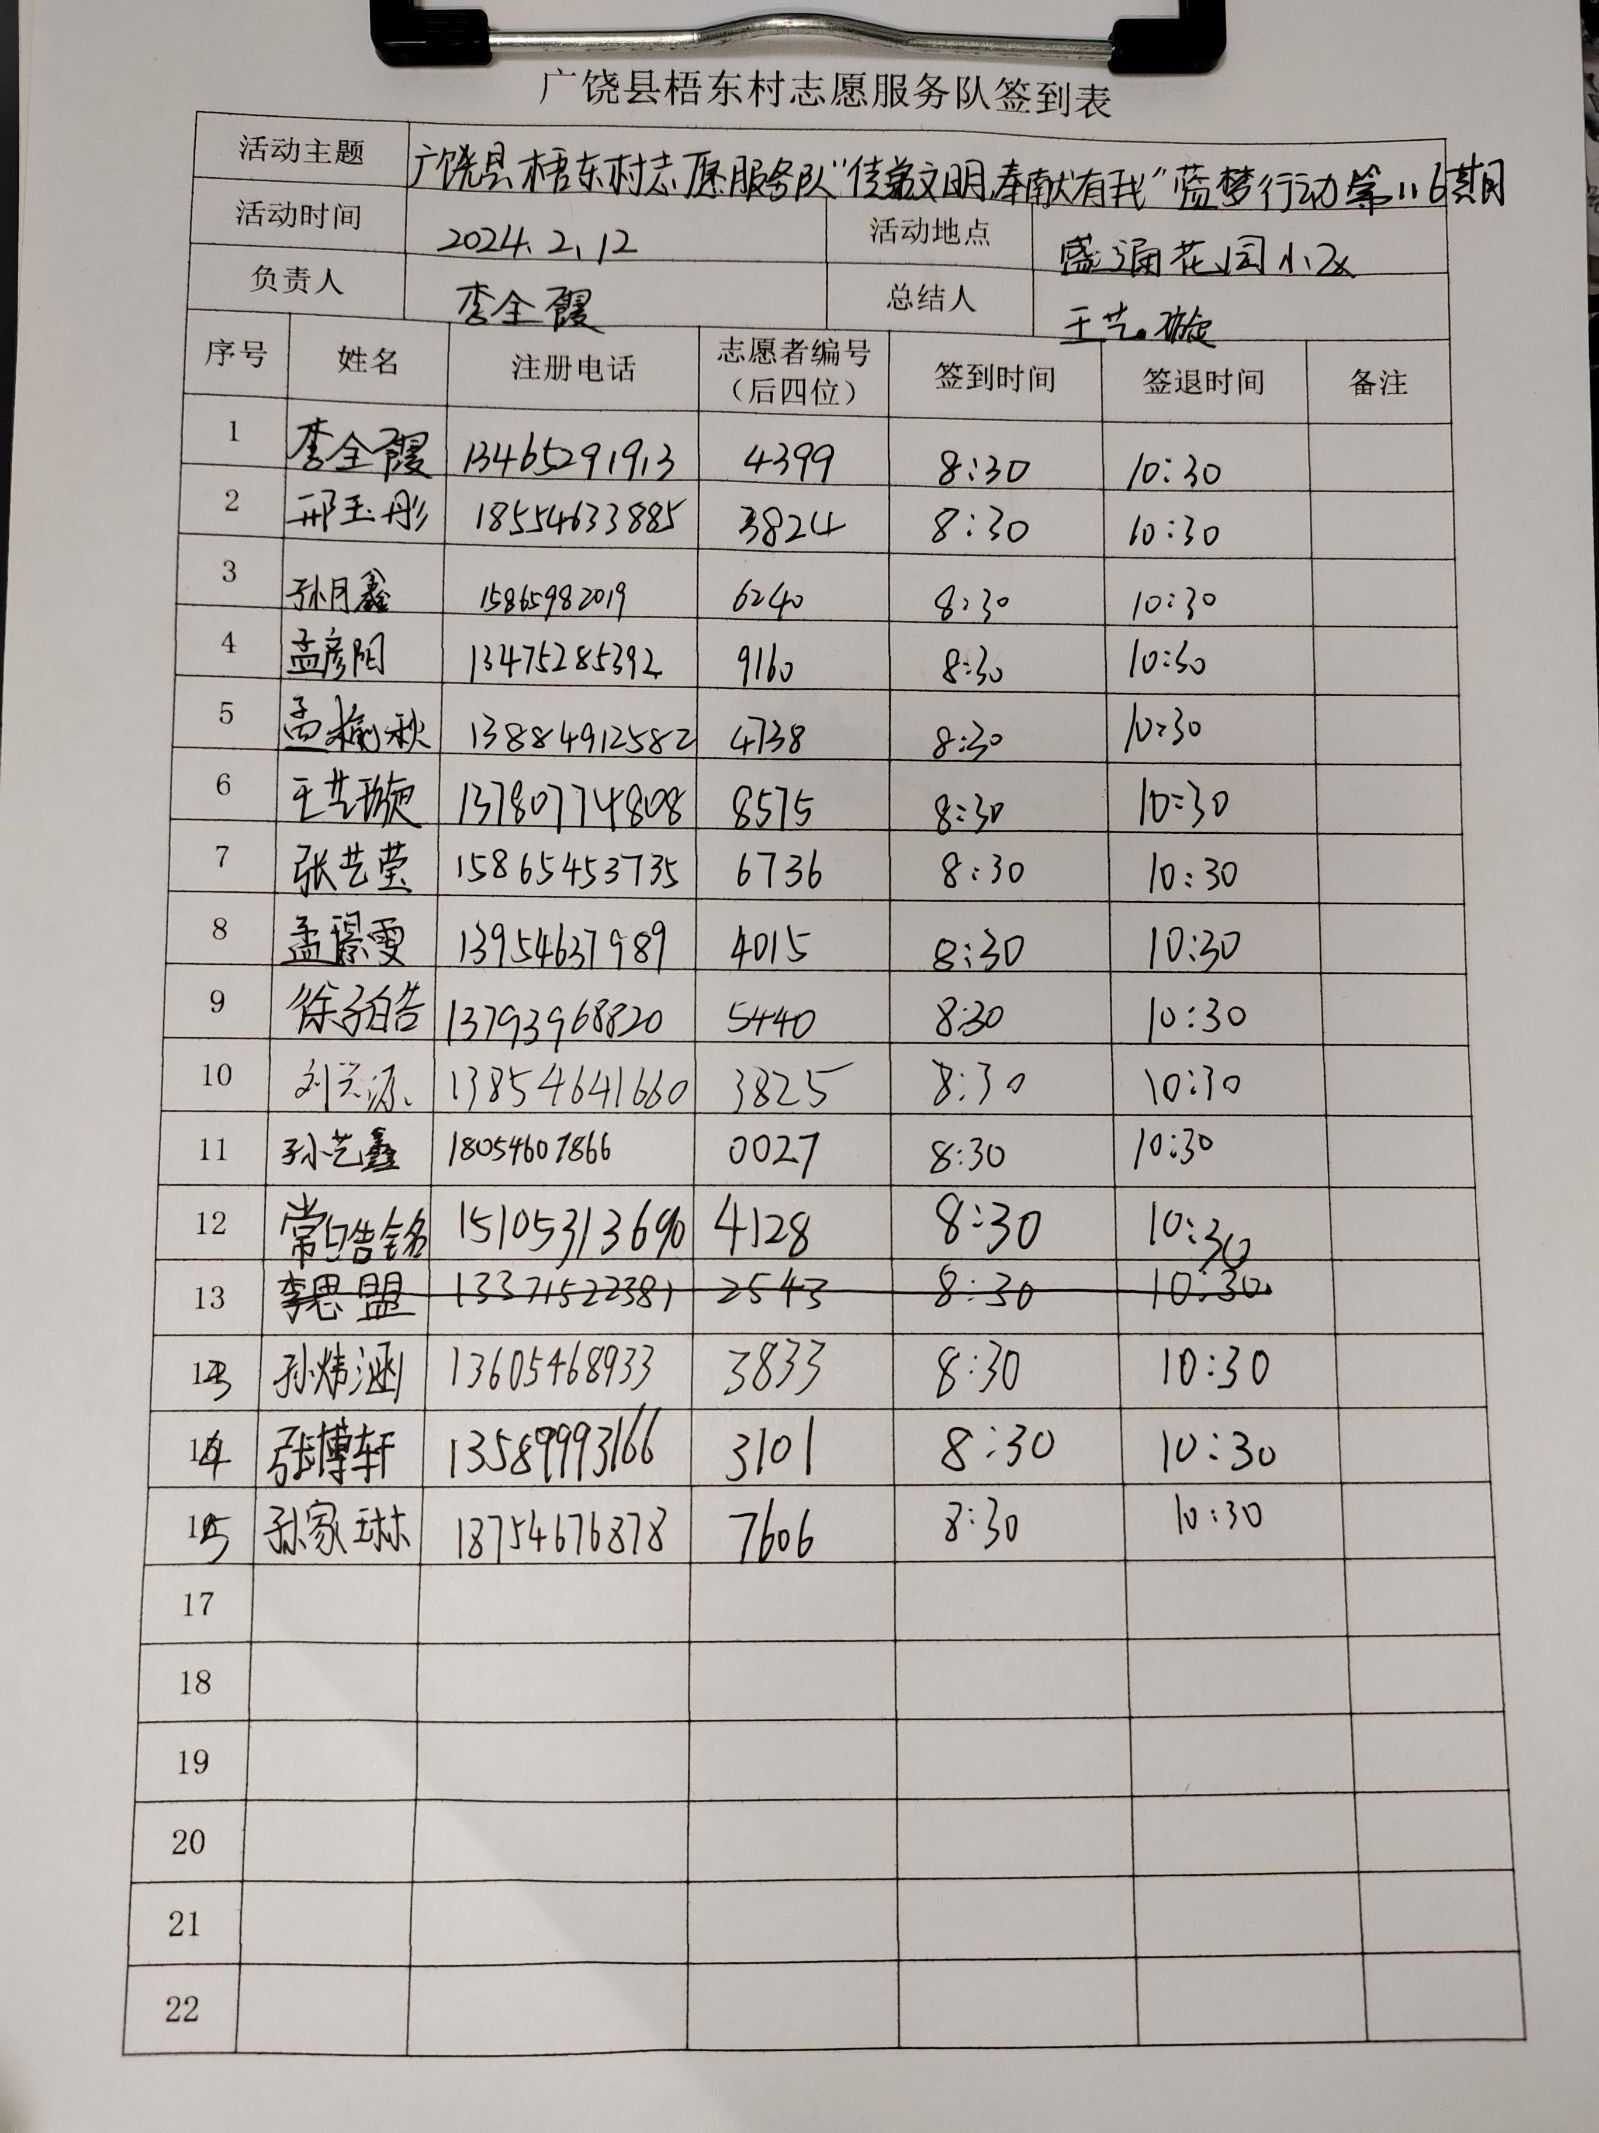 广饶县梧东村志愿服务队签到表
活动主题 广饶县梧东村志愿服务队“传递文明,奉献有我”蓝梦行动第116期
活动时间 2024.2.12 活动地点 盛涌花园小区
负责人 李全霞 总结人 王艺璇
序号 姓名 注册电话 志愿者编号（后四位） 签到时间 签退时间 备注
1 李全霞 13465291913 4399 8:30 10:30
2 邢玉彤 18554633885 3824 8:30 10:30
3 孙月鑫 15865982019 6240 8:30 10:30
4 孟彦阳 13475285392 9160 8:30 10:30
5 孟榆秋 13884912582 4738 8:30 10:30
6 王艺璇 13780774808 8575 8:30 10:30
7 张艺莹 15865453735 6736 8:30 10:30
8 孟璟雯 13954637989 4015 8:30 10:30
9 徐子皓 13793968820 5440 8:30 10:30
10 刘兴源 13854641660 3825 8:30 10:30
11 孙艺鑫 18054607866 0027 8:30 10:30
12 常皓铭 15105313690 4128 8:30 10:30
13 李思盟 13371522381 2543 8:30 10:30.
13 孙炜涵 13605468933 3833 8:30 10:30
14 张博轩 13589993166 3101 8:30 10:30
15 孙家琳 18754676878 7606 8:30 10:30
17
18
19
20
21
22